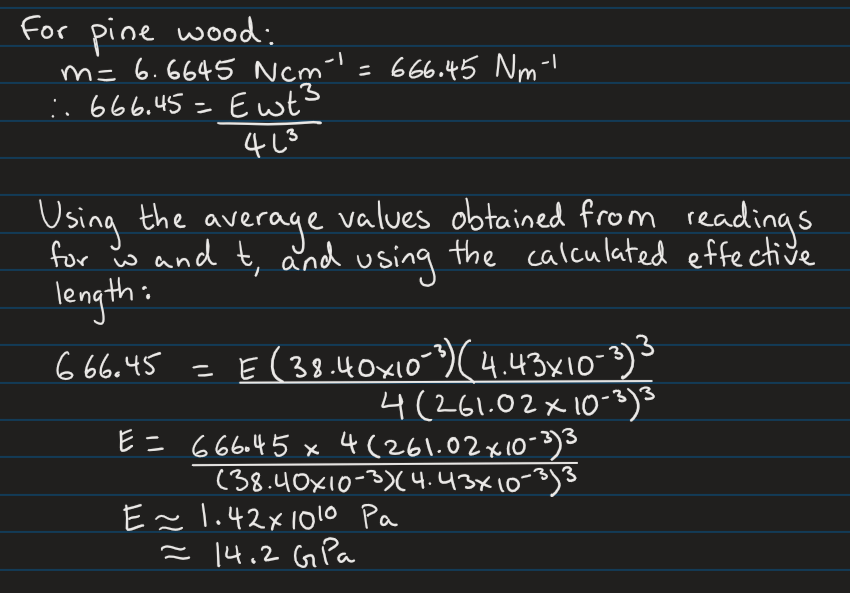 For pine wood:
m = 6.6645 Ncm⁻¹ = 666.45 Nm⁻¹
∴ 666.45 = Ewt³
4L³
Using the average values obtained from readings
for w and t, and using the calculated effective
length:
666.45 = E(38.40x10⁻³)(4.43x10⁻³)³
4(261.02x10⁻³)³
E = 666.45 x 4(261.02x10⁻³)³
(38.40x10⁻³)(4.43x10⁻³)³
E ≈ 1.42x10¹⁰ Pa
≈ 14.2 GPa